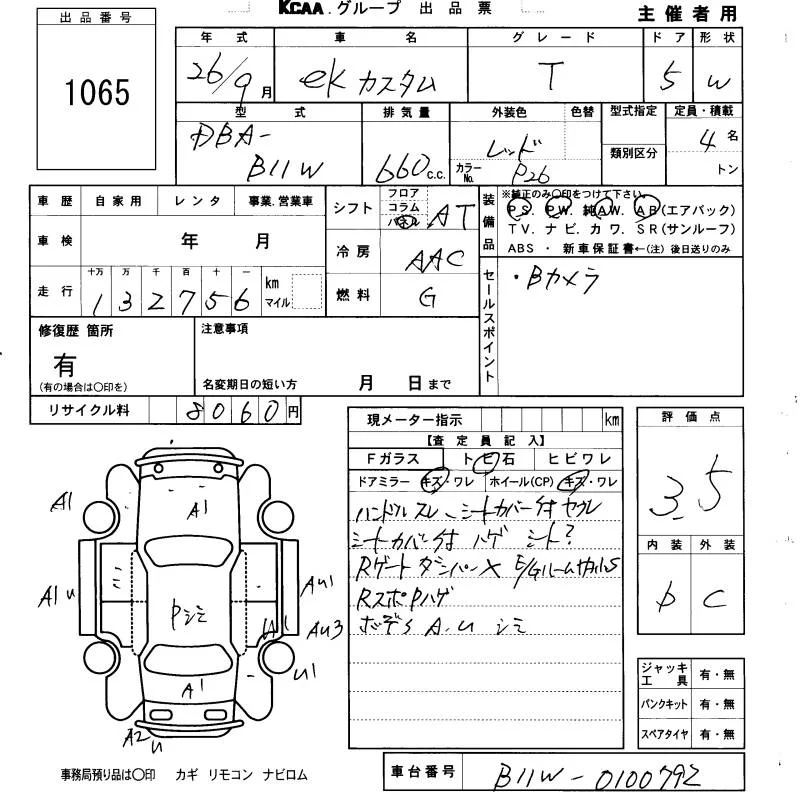 KCAA.グループ 出品票
主催者用
出品番号
1065
年式 車名 グレード ドア 形状
26/9月 ekカスタム T 5 W
型式 排気量 外装色 色替 型式指定 定員・積載
DBA-B11W 660c.c. レッド 4名
カラーNo. P26 類別区分 トン
車歴 自家用 レンタ 事業.営業車
車検 年 月
走行 十万 万 千 百 十 一
132756 km マイル
シフト フロア コラム パネル AT
冷房 AAC
燃料 G
装備品 ※純正のみ○印をつけて下さい。
PS. PW. 純AW. AB(エアバック)
TV. ナビ. カワ. SR(サンルーフ)
ABS ・ 新車保証書←(注) 後日送りのみ
セールスポイント ・Bカメラ
修復歴 箇所
有
(有の場合は○印を)
注意事項
名変期日の短い方 月 日まで
リサイクル料 8060円
現メーター指示 km
【査定員記入】
Fガラス トビ石 ヒビワレ
ドアミラー キズ・ワレ ホイール(CP) キズ・ワレ
ハンドルスレ シートカバー付
シートカバー付 ハゲ シート?
Rゲート
Rスポ Pハゲ
A.U シミ
評価点
3.5
内装 外装
D C
ジャッキ工具 有・無
パンクキット 有・無
スペアタイヤ 有・無
A1
A1
A1
U
Pシミ
AU1
A1
AU3
U1
A1
A2
U
事務局預り品は○印 カギ リモコン ナビロム
車台番号 B11W-0100792